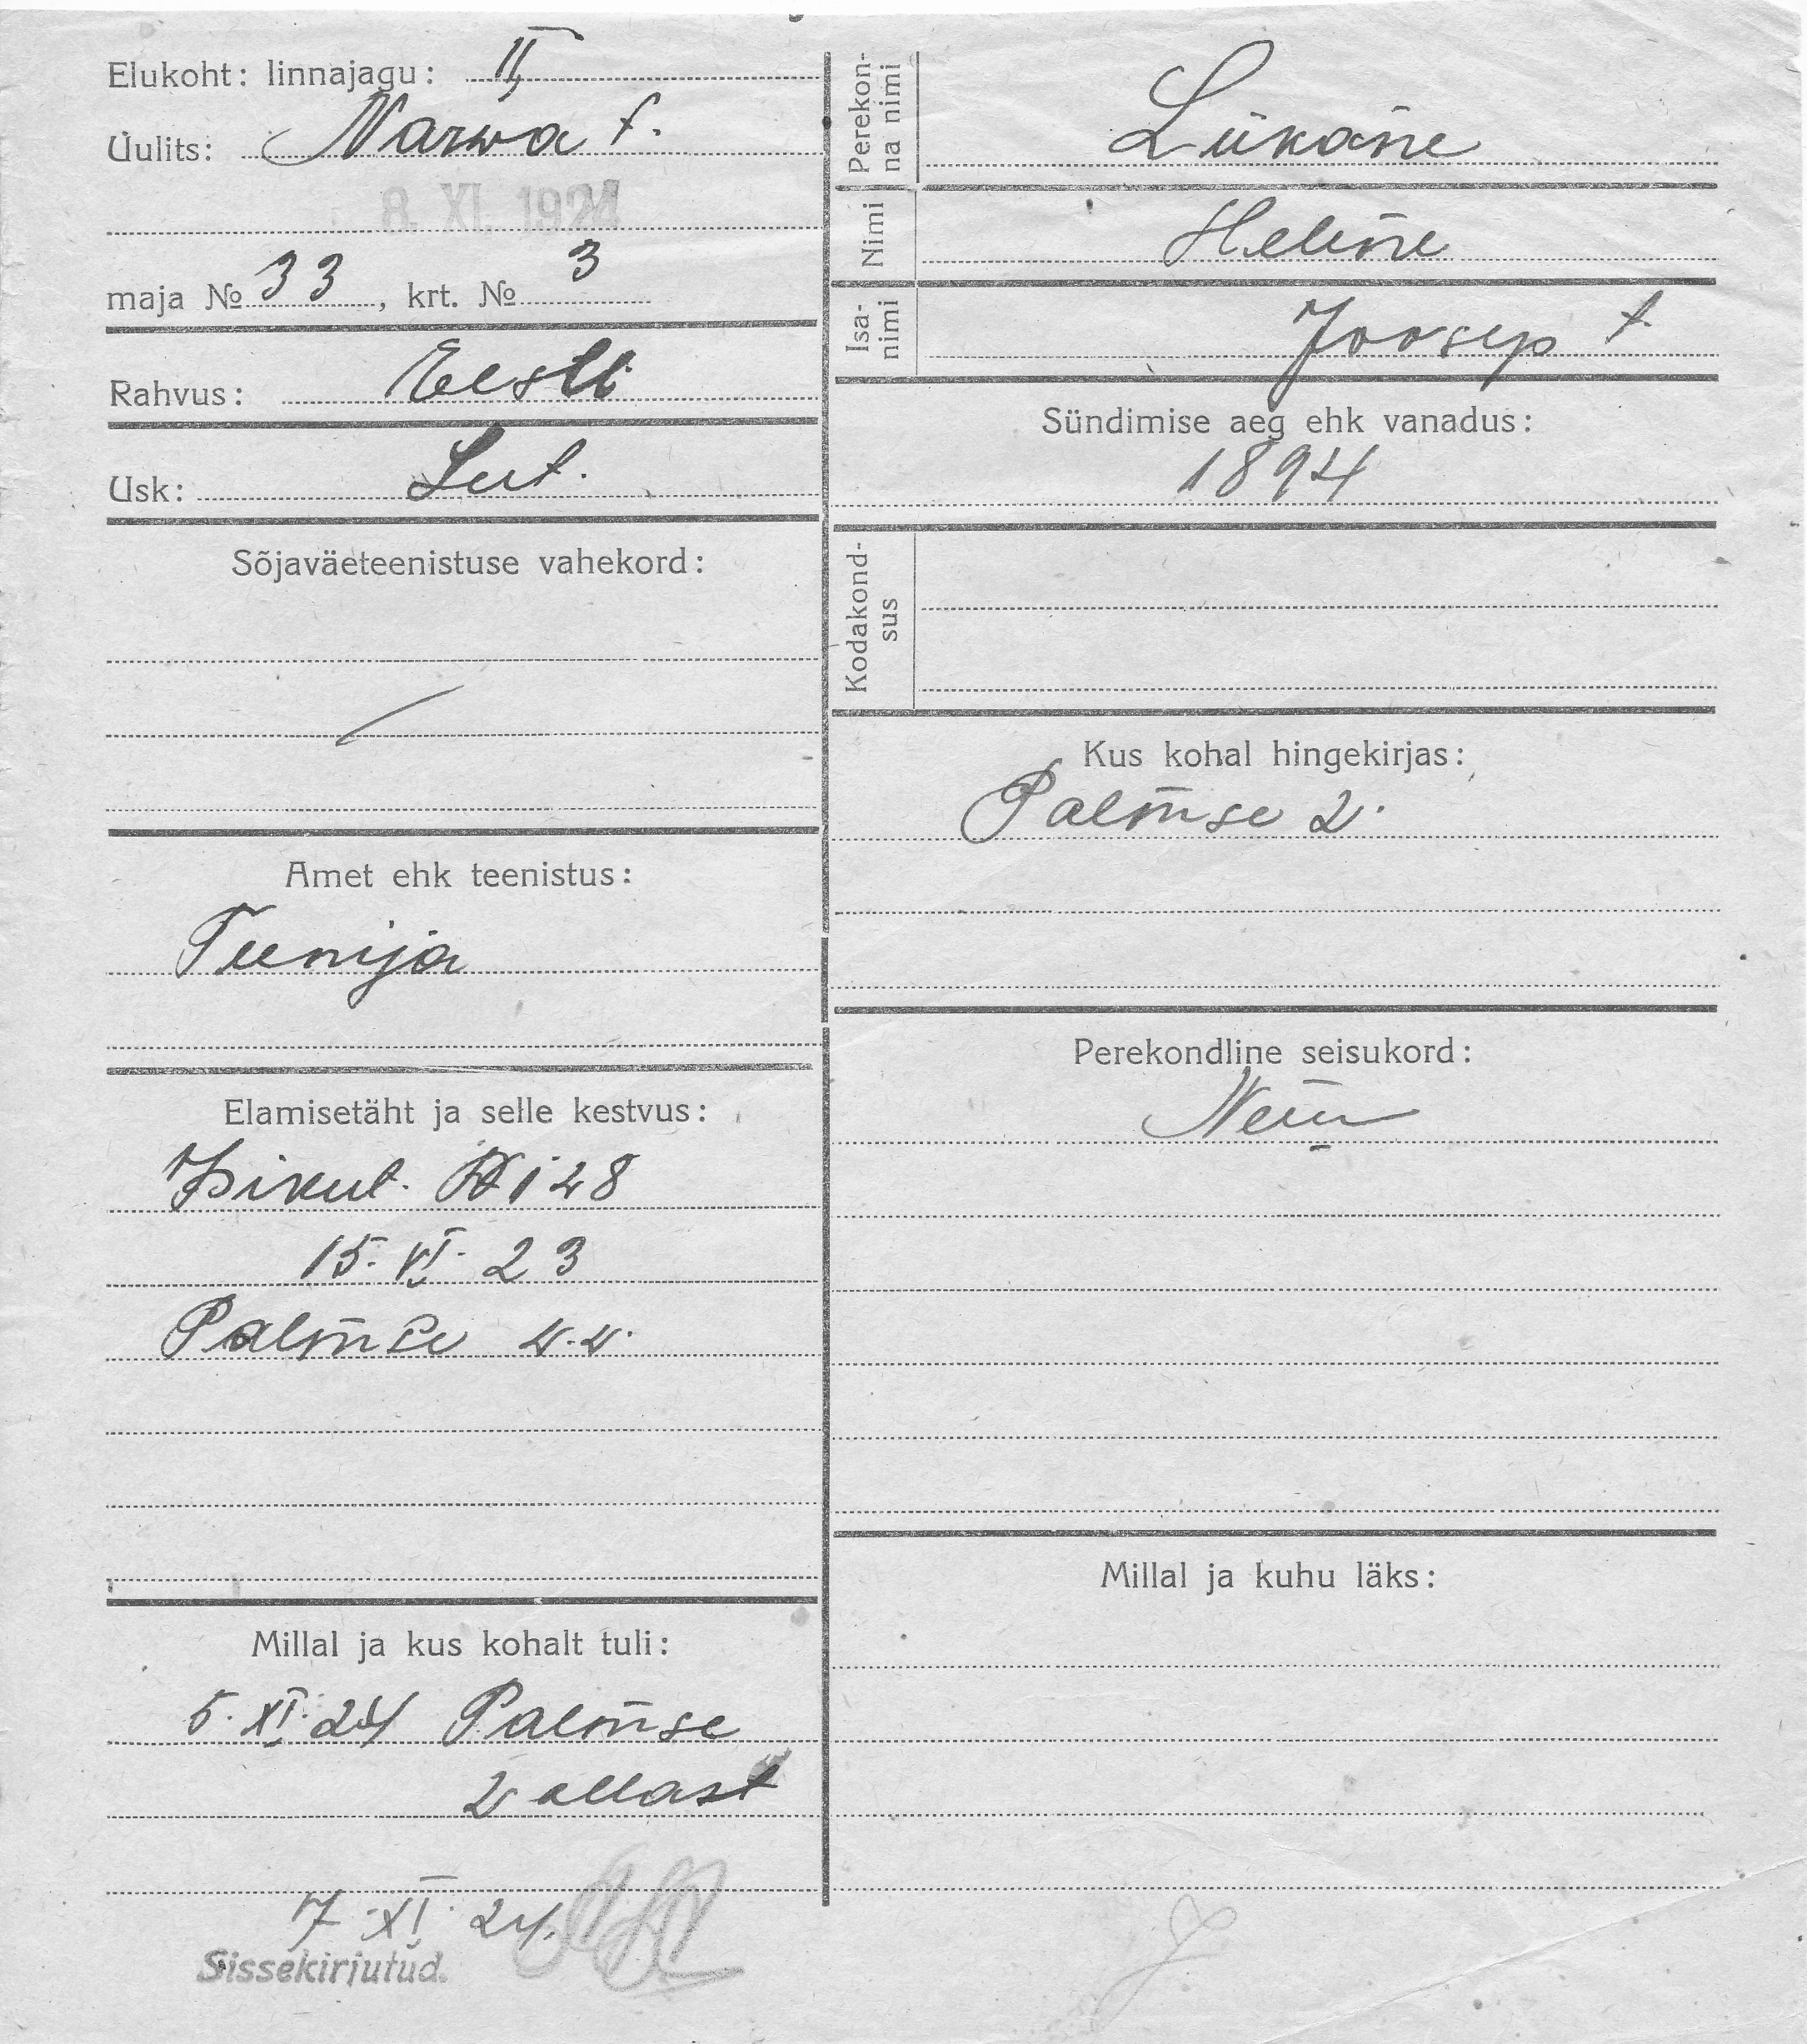 Elukoht: linnajagu: II
Üulits: Narwa t.
8. XI. 1924
maja № 33, krt. № 3
Rahvus: Eesti
Usk: Lut.
Sõjaväeteenistuse vahekord:
Amet ehk teenistus:
Teenija
Elamisetäht ja selle kestvus:
Isikut. № 128
15. VI. 23
Palmse v.v.
Millal ja kus kohalt tuli:
5. XI. 24 Palmse
vallast
7. XI. 24.
Sissekirjutud.
Perekon-
na nimi
Liikane
Nimi Helene
Isa-
nimi
Joosep t.
Sündimise aeg ehk vanadus:
1894
Kodakond-
sus
Kus kohal hingekirjas:
Palmse v.
Perekondline seisukord:
Neiu
Millal ja kuhu läks: